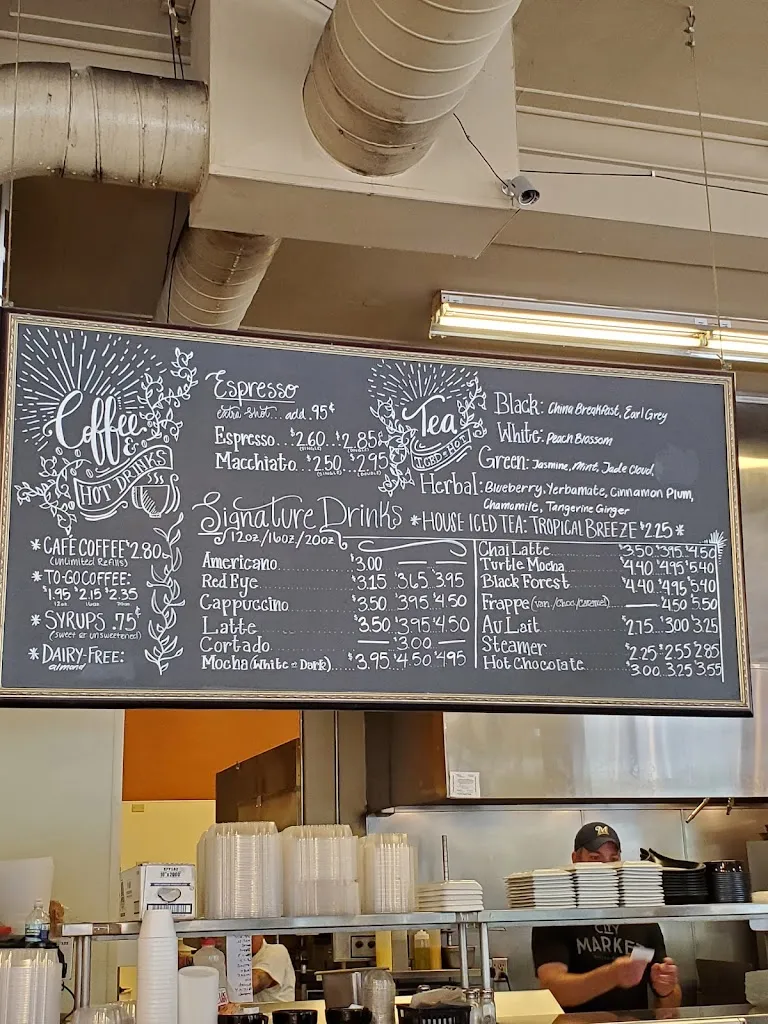 Coffee
&
HOT DRINKS
*CAFÉ COFFEE $2.80
(unlimited Refills)
*TO-GO COFFEE:
$1.95 $2.15 $2.35
12oz 16oz 20oz
*SYRUPS .75¢
(sweet or unsweetened)
*DAIRY-FREE:
almond
Espresso
extra shot... add .95¢
Espresso...$2.60...$2.85
(SINGLE) (DOUBLE)
Macchiato...$2.50...$2.75
(SINGLE) (DOUBLE)
Tea
ICED or HOT
Black: China Breakfast, Earl Grey
White: Peach Blossom
Green: Jasmine, Mint, Jade Cloud,
Herbal: Blueberry, Yerbamate, Cinnamon Plum,
Chamomile, Tangerine Ginger
*HOUSE ICED TEA: TROPICAL BREEZE $2.25*
Signature Drinks
12oz/16oz/20oz
Americano $3.00 — —
Red Eye $3.15 $3.65 $3.95
Cappuccino $3.50 $3.95 $4.50
Latte $3.50 $3.95 $4.50
Cortado — 3.00 —
Mocha (White or Dark) $3.95 $4.50 $4.95
Chai Latte $3.50 $3.95 $4.50
Turtle Mocha $4.40 $4.95 $5.40
Black Forest $4.40 $4.95 $5.40
Frappe (Van./Choc./Caramel) — 4.50 5.50
Au Lait $2.75 $3.00 $3.25
Steamer $2.25 $2.55 $2.85
Hot Chocolate $3.00 3.25 3.55
M
CITY
MARKET